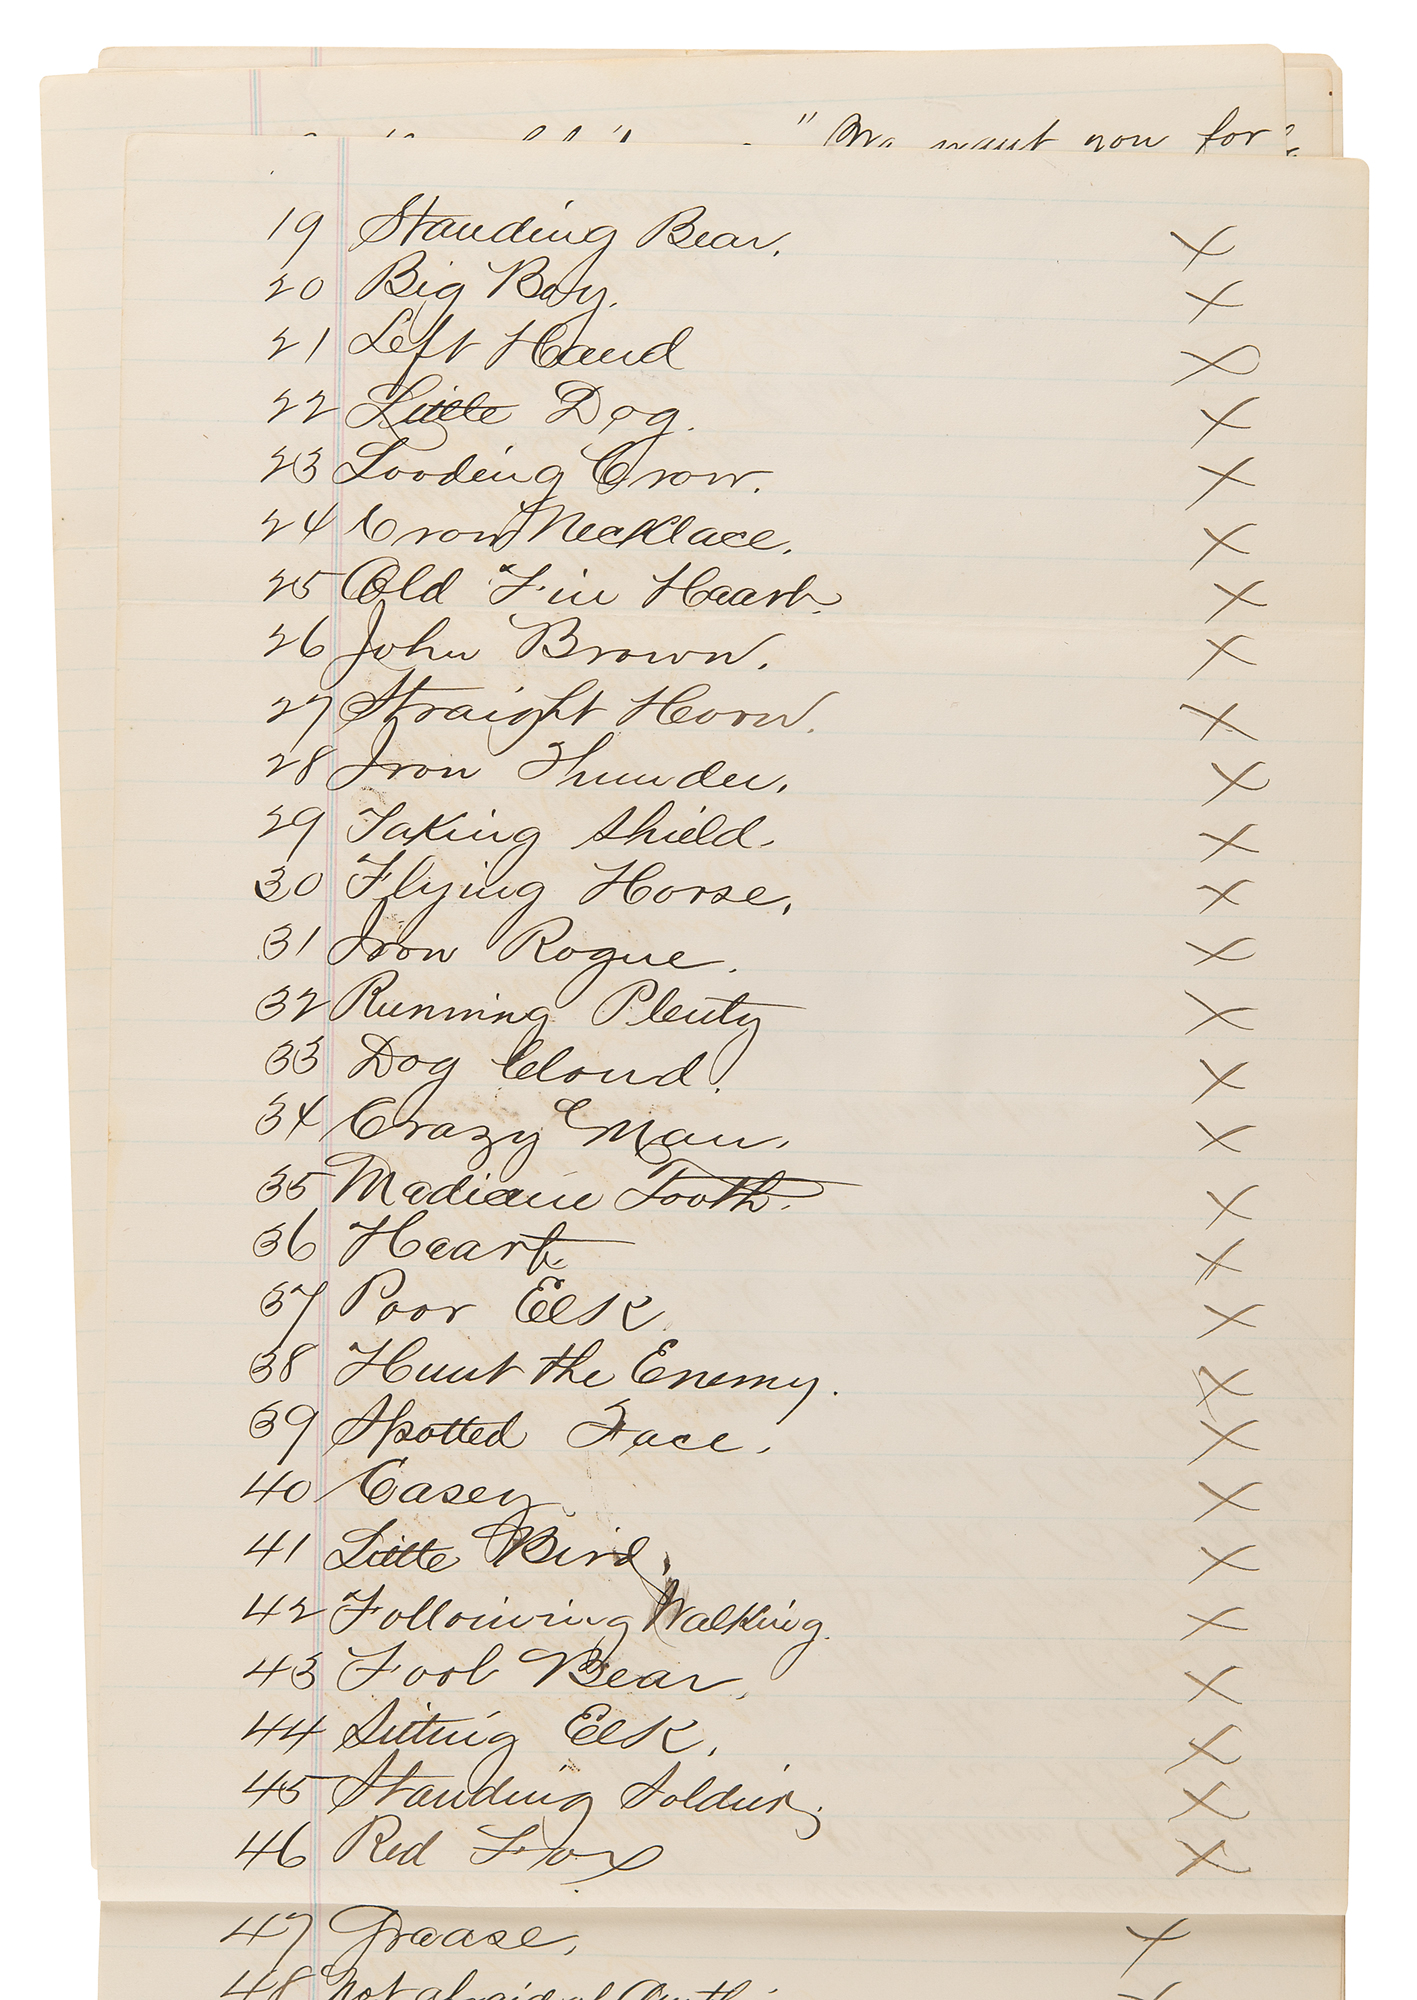 " We want you for
19 Standing Bear. X
20 Big Boy. X
21 Left Hand X
22 Little Dog. X
23 Looding Crow. X
24 Crow Necklace. X
25 Old Fire Heart. X
26 John Brown. X
27 Straight Horn. X
28 Iron Thunder. X
29 Taking Shield. X
30 Flying Horse. X
31 Iron Rogue. X
32 Running Plenty X
33 Dog Cloud. X
34 Crazy Man. X
35 Medicine Tooth. X
36 Heart. X
37 Poor Elk X
38 Hunt the Enemy. X
39 Spotted Face. X
40 Casey X
41 Little Bird. X
42 Following Walking. X
43 Fool Bear. X
44 Sitting Elk. X
45 Standing Soldier. X
46 Red Fox X
47 Grease. X
48 Not afraid of